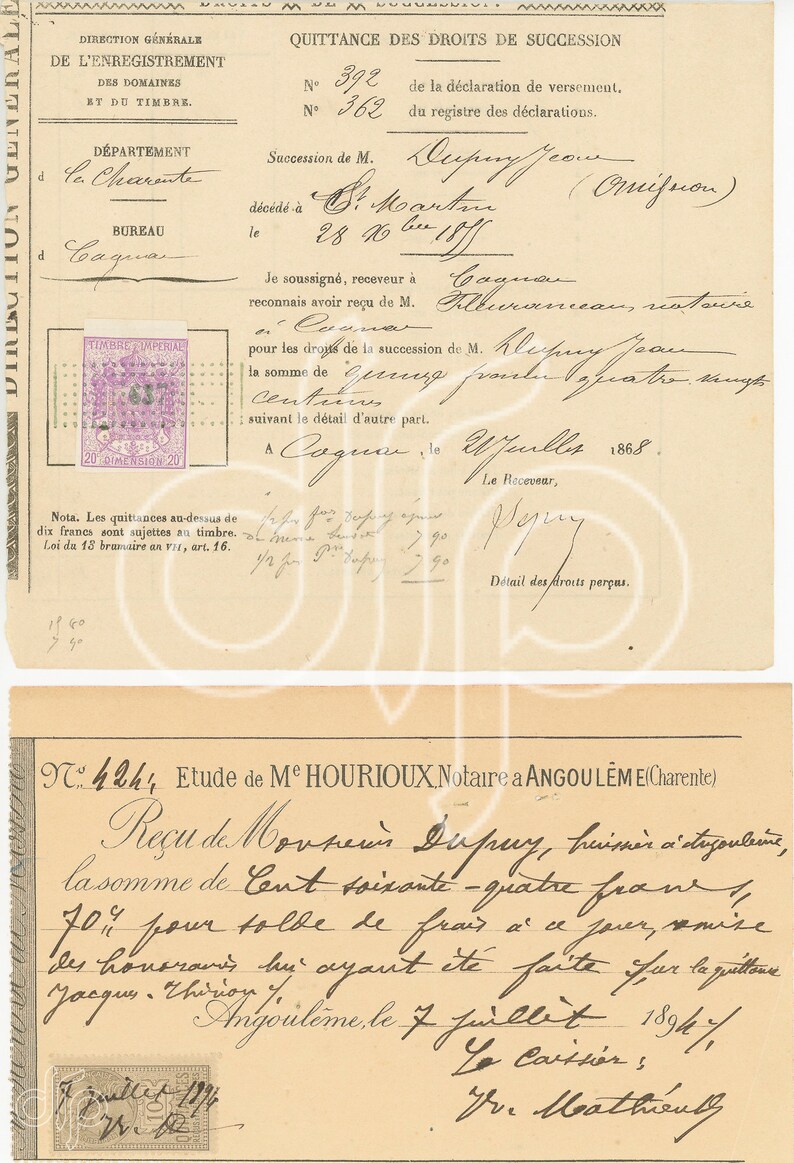 DROITS DE SUCCESSION.
DIRECTION GÉNÉRALE
DIRECTION GÉNÉRALE
DE L'ENREGISTREMENT
DES DOMAINES
ET DU TIMBRE.
DÉPARTEMENT
d la Charente
BUREAU
d Cognac
TIMBRE IMPERIAL
637
20c DIMENSION 20c
Nota. Les quittances au-dessus de
dix francs sont sujettes au timbre.
Loi du 13 brumaire an VII, art. 16.
QUITTANCE DES DROITS DE SUCCESSION
No 392 de la déclaration de versement.
No 362 du registre des déclarations.
Succession de M. Dupuy Jean
(omission)
décédé à St Martin
le 28 Xbre 1855
Je soussigné, receveur à Cognac
reconnais avoir reçu de M. Fleuranceau, notaire
à Cognac
pour les droits de la succession de M. Dupuy Jean
la somme de quinze francs quatre-vingts
centimes
suivant le détail d'autre part.
A Cognac, le 21 Juillet 1868.
Le Receveur,
1/2 par Dupuy
7 90
1/2 par Dupuy 7 90
Détail des droits perçus.
15 80
7 90
No 424, Etude de Me HOURIOUX, Notaire a ANGOULÊME (Charente)
Reçu de Monsieur Dupuy, huissier à Angoulême,
la somme de Cent soixante-quatre francs,
70c pour solde de frais à ce jour, remise
des honoraires lui ayant été faite sur la quittance
Jacques-Thirion
Angoulême, le 7 juillet 1894
Le Caissier:
7 juillet 1894
10c
dp